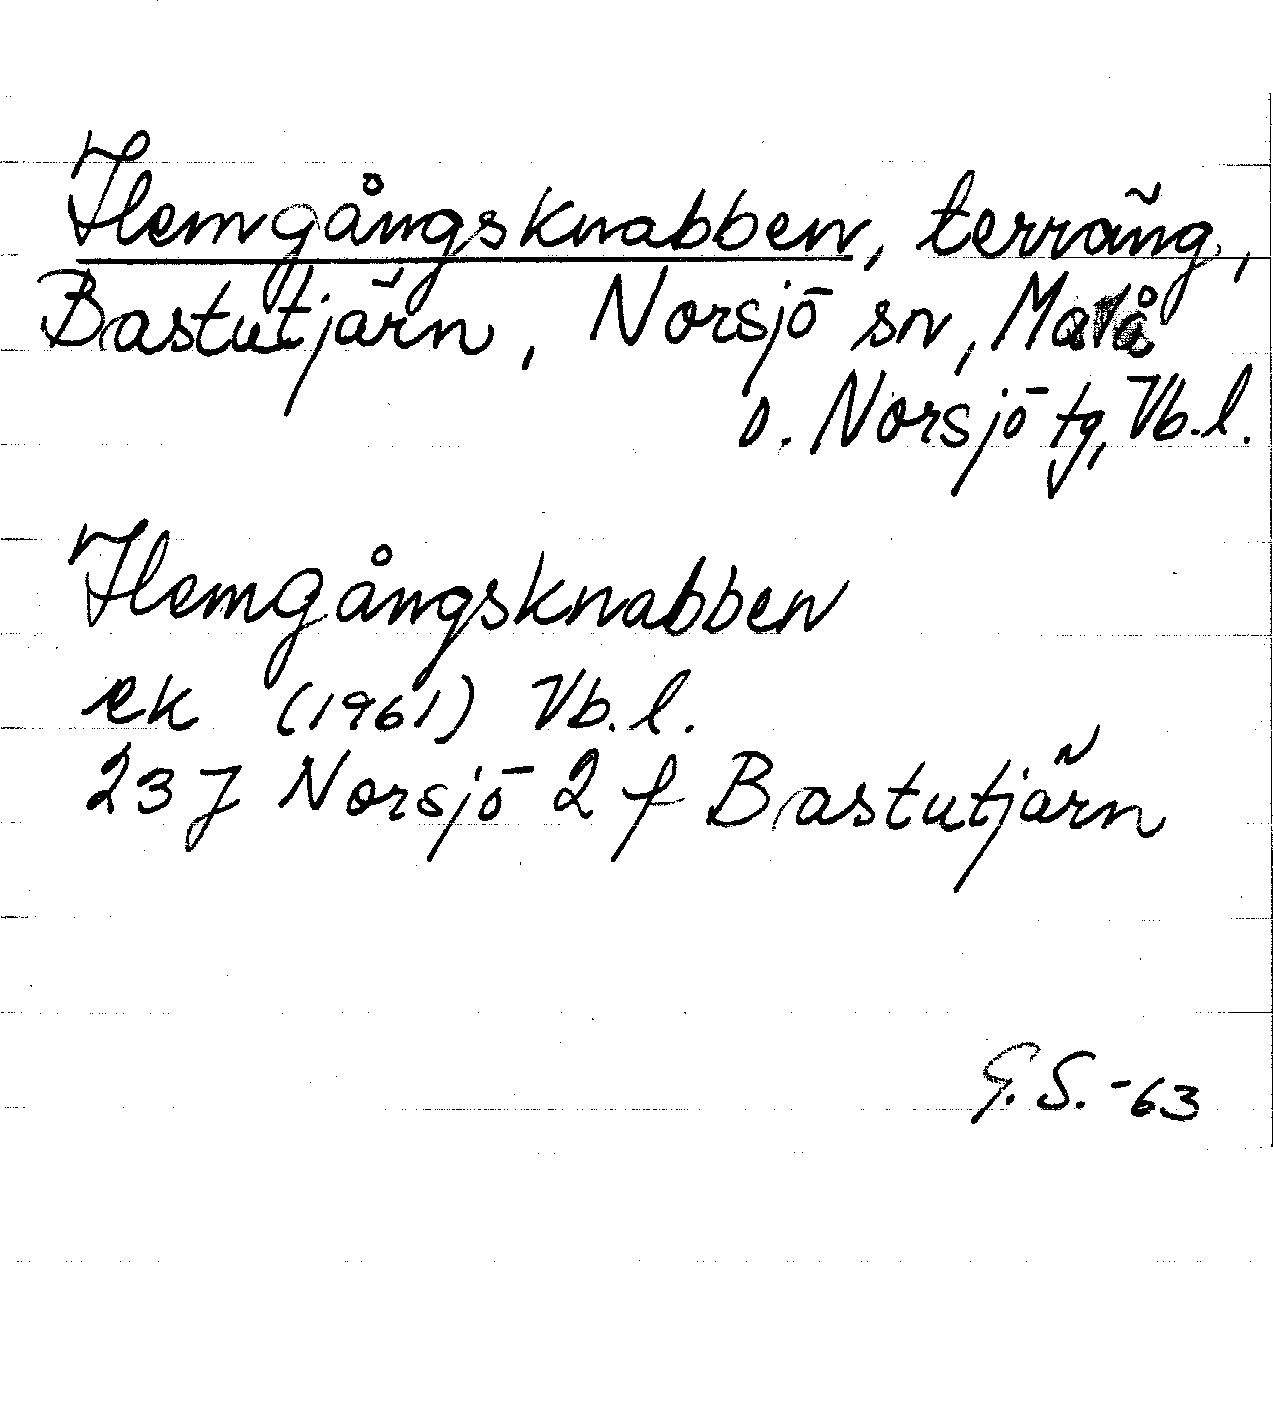 Hemgångsknabben, terräng,
Bastutjärn, Norsjö sn, Malå
o. Norsjö tg, Vb.l.
Hemgångsknabben
ek (1961) Vb.l.
23J Norsjö 2 f Bastutjärn
G.S.-63